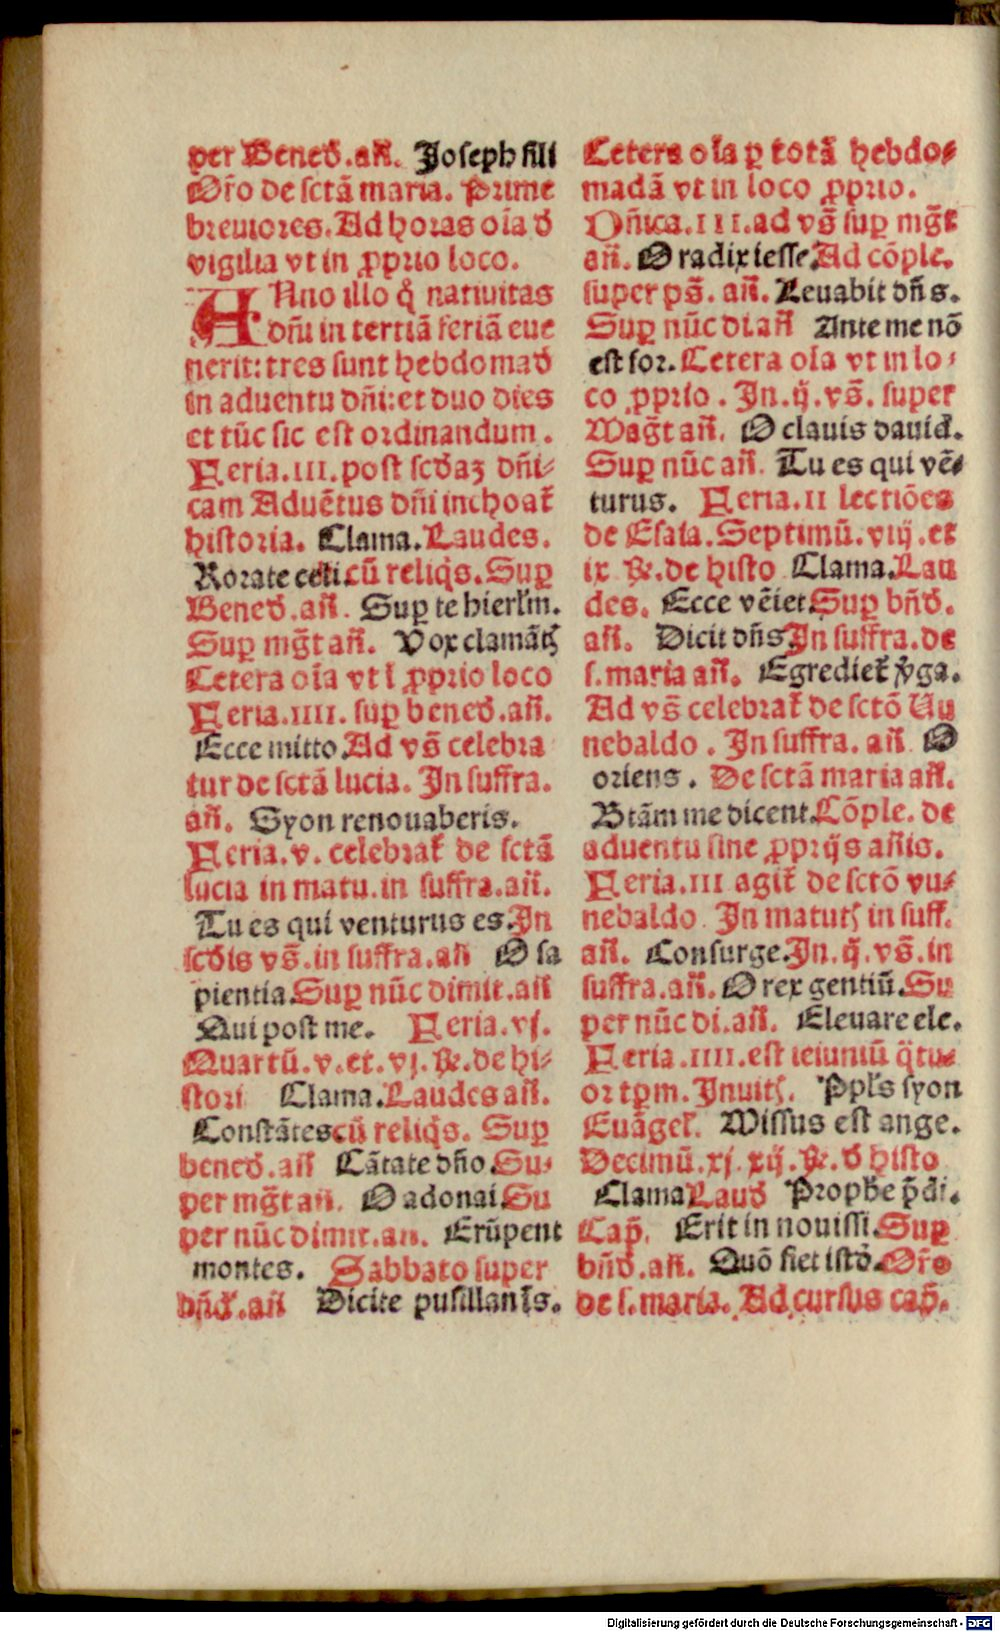 per Bened̄.an̄. Joseph fili
Or̄o de sctā maria. Prime
breuiores. Ad horas oīa d̄
vigilia vt in ꝓprio loco.
ANno illo q̄ natiuitas
dn̄i in tertiā feriā eue
nerit: tres sunt hebdomad̄
in aduentu dn̄i: et duo dies
et tūc sic est ordinandum.
Feria.III.post scd̄aꝫ dn̄i-
cam Aduētus dn̄i inchoat̄
historia. Clama. Laudes.
Rorate celi. cū reliq̄s. Suꝑ
Bened̄.an̄. Suꝑ te hierl̄m.
Suꝑ mḡt an̄. Vox clamātꝭ
Cetera oīa vt ī ꝓprio loco
Feria.IIII. suꝑ bened̄.an̄.
Ecce mitto. Ad vs̄ celebra
tur de sctā lucia. In suffra.
an̄. Syon renouaberis.
Feria.v. celebrat̄ de sctā
lucia in matu.in suffra.an̄.
Tu es qui venturus es. In
scd̄is vs̄.in suffra.an̄ O sa
pientia. Suꝑ nūc dimit.an̄
Qui post me. Feria.vj.
Quartū.v.et.vj.℟.de hi-
stori Clama. Laudes an̄.
Constātes cū reliq̄s. Suꝑ
bened̄.an̄ Cātate dn̄o. Su-
per mḡt an̄. O adonai. Su
per nūc dimit.an̄. Erūpent
montes. Sabbato super
bn̄d̄.an̄ Dicite pusillanīs.
Cetera oīa ꝑ totā hebdo-
madā vt in loco ꝓprio.
Dn̄ica.III.ad vs̄ suꝑ mḡt
an̄. O radix iesse. Ad cōple.
super ps̄. an̄. Leuabit dn̄s.
Suꝑ nūc di an̄ Ante me nō
est for. Cetera oīa vt in lo-
co ꝓprio. In.ij.vs̄. super
Maḡt an̄. O clauis dauid̄.
Suꝑ nūc an̄. Tu es qui vē-
turus. Feria.II lectiōes
de Esaia. Septimū.viij.et
ix ℟.de histo Clama. Lau
des. Ecce vēiet. Suꝑ bn̄d̄.
an̄. Dicit dn̄s In suffra.de
s.maria an̄. Egrediet̄ v̄ga.
Ad vs̄ celebrat̄ de sctō Vu
nebaldo. In suffra. an̄ O
oriens. De sctā maria an̄.
Btām me dicent. Cōple. de
aduentu sine ꝓprijs an̄is.
Feria.III agit̄ de sctō vu-
nebaldo In matutꝭ in suff.
an̄. Consurge. In.ij.vs̄.in
suffra.an̄. O rex gentiū. Su
per nūc di.an̄. Eleuare ele.
Feria.IIII.est ieiuniū q̄tu-
or tꝑm. Inuitꝭ. Ppl̄s syon
Euāgel̄. Missus est ange.
Decimū.xj.xij.℟.d̄ histo
Clama Laud̄ Prophe p̄di.
Cap̄. Erit in nouissi. Suꝑ
bn̄d̄.an̄. Quō fiet istd̄. Or̄o
de s.maria. Ad cursus cap̄.
Digitalisierung gefördert durch die Deutsche Forschungsgemeinschaft - DFG